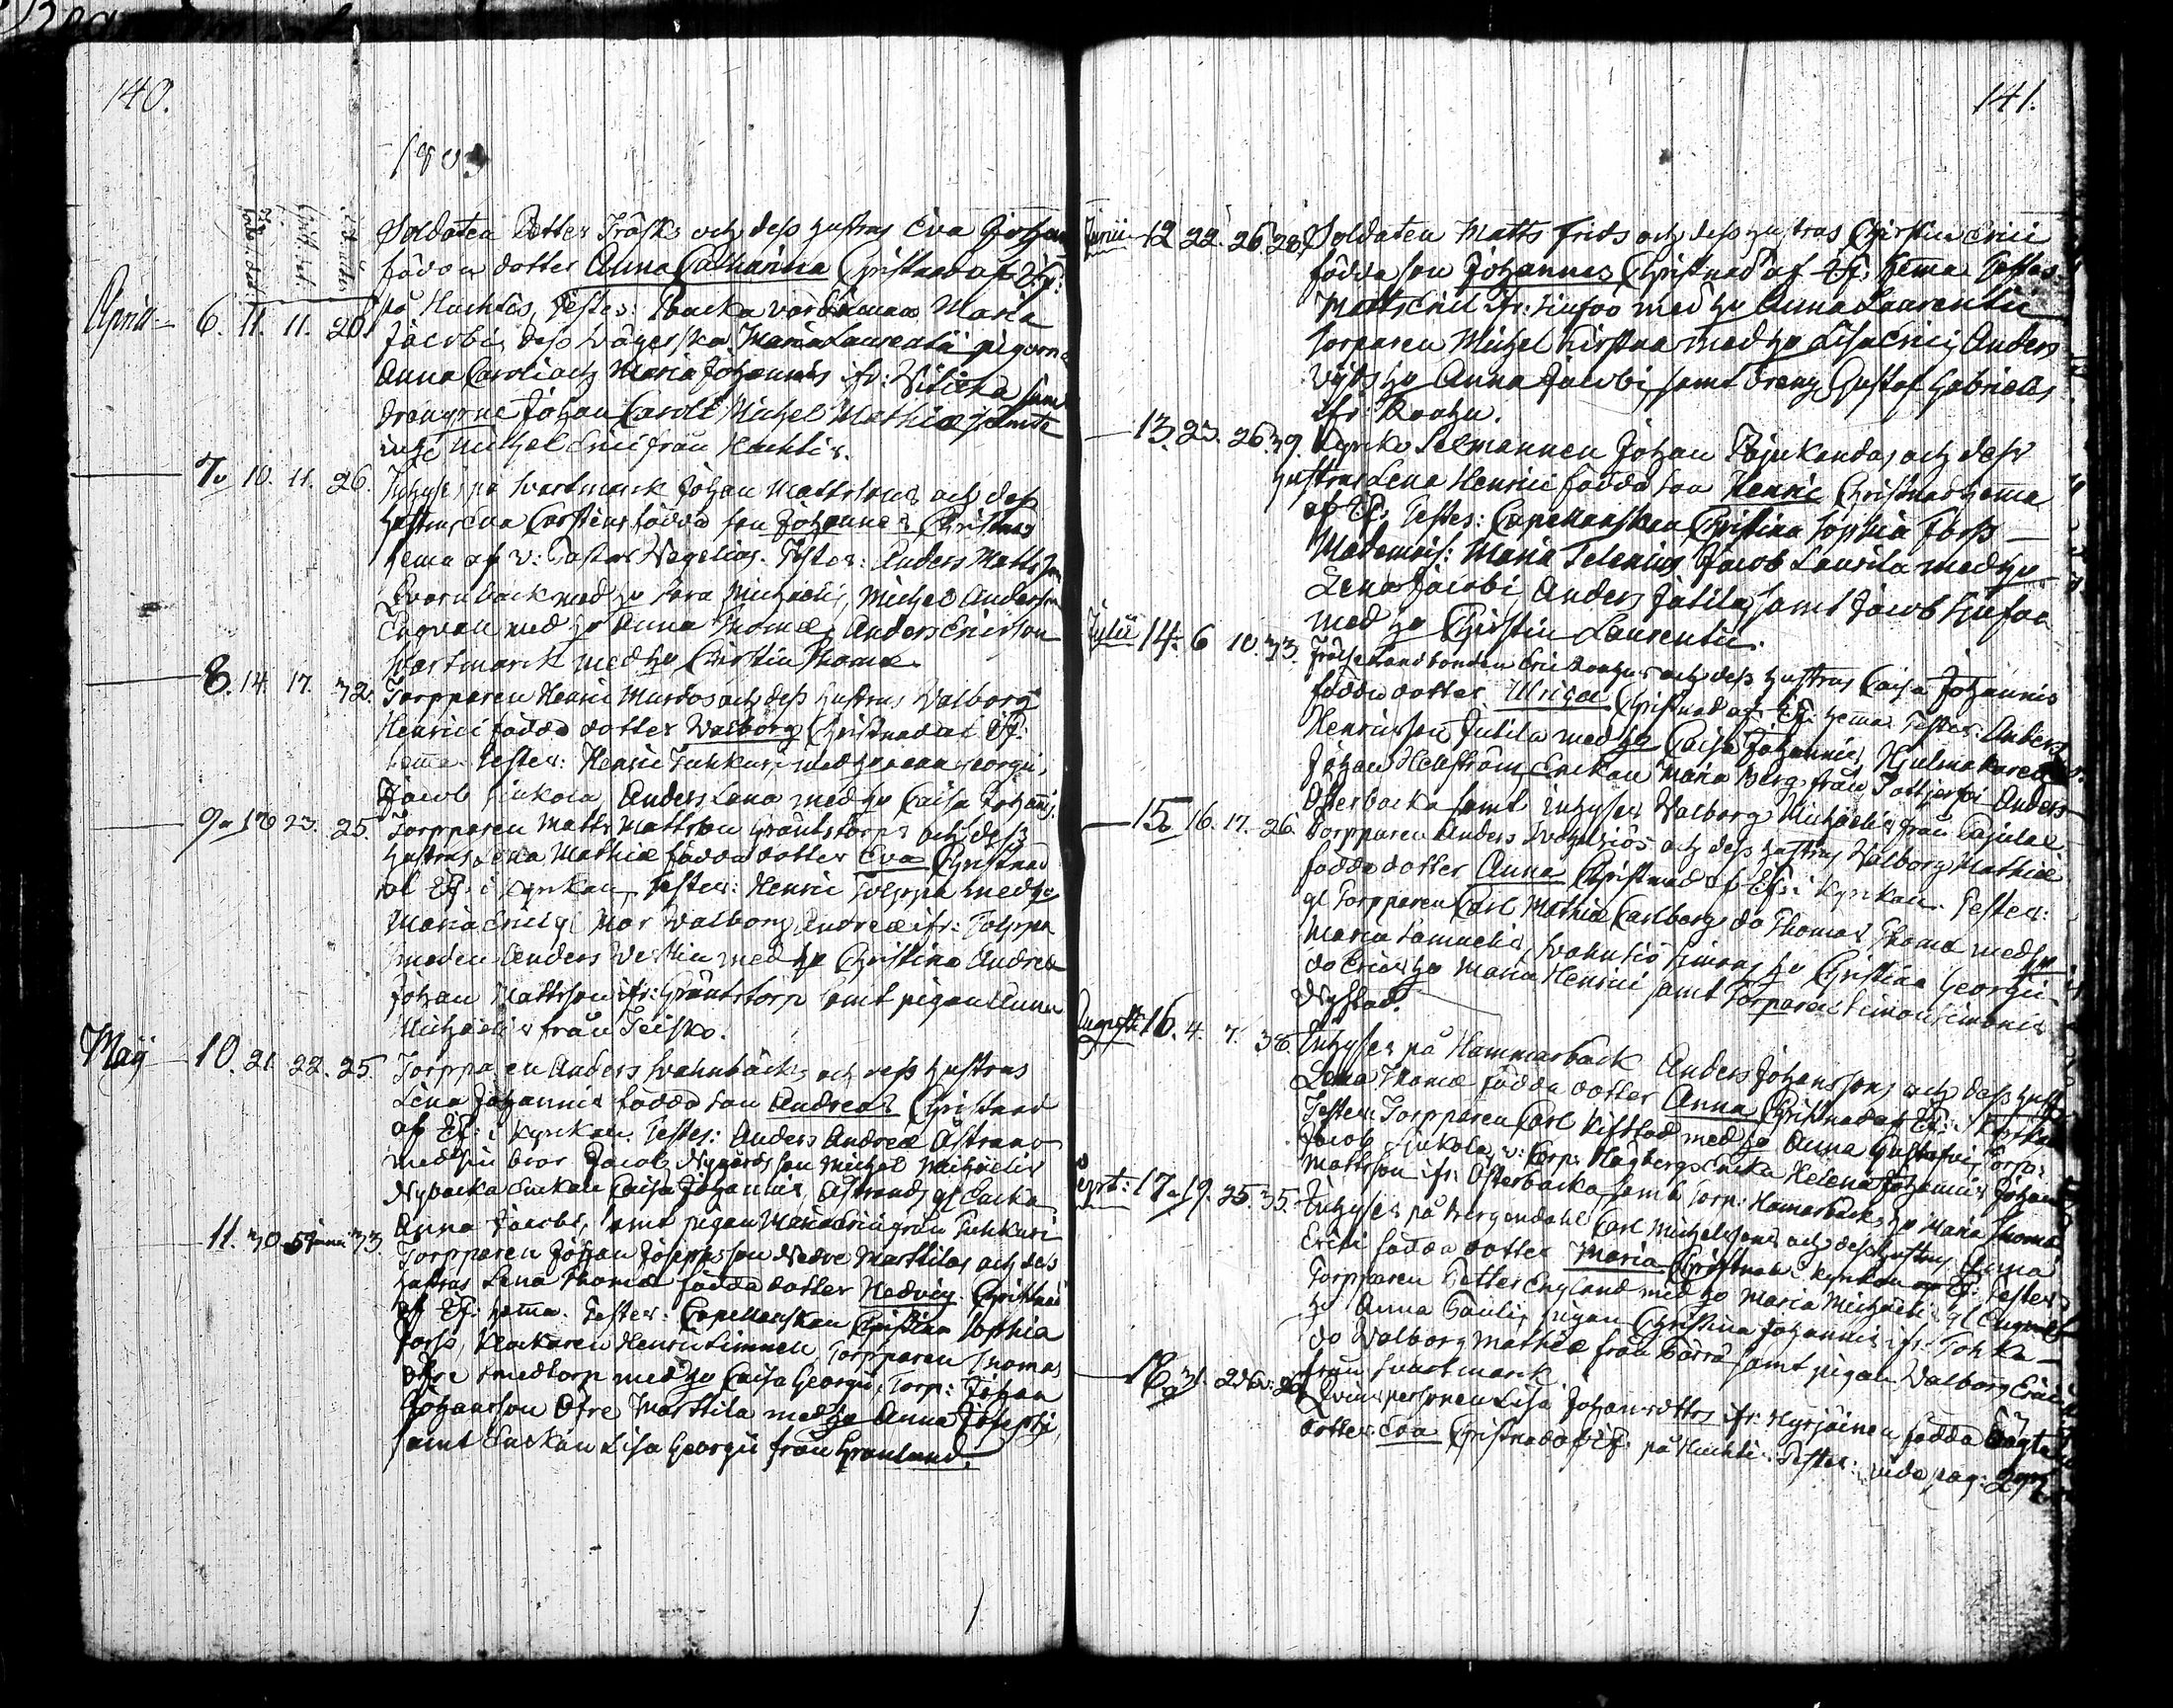 140.
1803
född. Christ.
April 6. 11. 11. 20. Soldaten Petter Träsks och dess hustrus Eva Johan
född dotter Anna Catharina Christnad af Ef:
på Huchtis, Testes: Backa vard Maria
Jacobi, dess Maria Laurentii pigorna
Anna Caroli och Maria Johannis ifr:
drengarne Johan Caroli Michel Mathiæ samt
inhs Michel Erici från Huchtis.
7. 10. 11. 26. Inhyses på Svartmarck Johan Mattssons och dess
hustrus Eva Carstens födda son Johannes Christnad
hema af v: Pastor Wegelius. Testes: Anders Mattsson
Qvarnback med hu Sara Michaelis, Michel Andersson
Engvall med hu Anna Thomæ, Anders Ericsson
Svartmarck med hu Christin Thomæ
8. 14. 17. 32. Torpparen Henric Murdos och dess hustrus Valborg
Henrici födda dotter Valborg Christnad af Ef:
hema. Testes: Henric Tuhkuri, med hu Anna Georgii,
Jacob Sinkola, Anders Lena med hu Caisa Johannis
9. 18. 23. 25. Torpparen Matts Mattsson Gräntstorps och dess
hustrus Lena Mathiæ födda dotter Eva Christnad
af Ef: i Kyrkan, Testes: Henric med hu
Maria Erici gl Mor Valborg Andreæ ifr:
smeden Anders Westlin med hu Christina Andreæ
Johan Mattsson ifr: Gräntstorp samt pigan Anna
Michaelis från Teisko.
Maij 10. 21. 22. 25. Torpparen Anders Svahnbäcks och dess hustrus
Lena Johannis födda son Andreas Christnad
af Ef: i Kyrkan. Testes: Anders Andreæ Åstrand
med sin bror Jacob, Nygårds son Michel Michaelis
Nybacka Enckan Caisa Johannis, Åstrands gl Encka
Anna Jacobi, samt pigan Maria Erici från Tuhkuri
11. 30. 5 Junii 33. Torpparen Johan Josephsson Nedre Marttilas och dess
hustrus Lena Thomæ födda dotter Hedvig. Christnad
af Ef: hema. Testes: Capellanskan Christina Sophia
Forss, Klockaren Henric Limnell, Torpparen Thomas
Öfre Smedtorp med hu Caisa Georgii, Torp: Johan
Johansson Öfre Marttila med hu Anna Josephi,
samt Enckan Lisa Georgii från Granlund.
141.
Junii 12. 22. 26. 28. Soldaten Matts Frids och dess hustrus Christin Erici
födda son Johannes Christnad af Ef: hema. Testes:
Matts Erici ifr: med hu Anna Laurentii
Torparen Michel Kirstua med hu Lisa Erici, Anders
hu Anna Jacobi, samt dreng Gustaf Gabrielis
ifr: Koahu.
13. 23. 26. 39. Kyrko Sexmannen Johan Pajukandas och dess
hustrus Lena Henrici födda son Henric Christnad hema
af Ef: Testes: Capellanskan Christina Sophia Forss
Mademois: Maria Telenius Jacob Laurila med hu
Lena Jacobi, Anders Jutila, samt Jacob
med hu Christin Laurentii.
Julii 14. 6. 10. 33. Frälse Landbonden Eric Koahus och dess hustrus Caisa Johannis
födda dotter Ulrica Christnad af Ef: hema. Testes: Anders
Henricsson Jutila med hu Caisa Johannis, Hjulmakaren
Johan Hellström, Enckan Maria Berg från Anders
Österbacka samt inhyses Valborg Michaelis från Pajula
15. 16. 17. 26. Torpparen Anders och dess hustrus Valborg Mathiæ
födda dotter Anna Christnad af Ef: i Kyrkan. Testes:
gl Torpparen Carl Mathiæ Carlborg do Thomas Thomæ med hu
Maria Samuelis, Svahnsiö hu Christina Georgii
do Erics hu Maria Henrici samt Torparen Simon Simonis
Nystad.
Augusti 16. 4. 7. 38. Inhyses på Hammarback Anders Johanssons och dess hust
Lena Thomæ födda dotter Anna Christnad af Ef: i Kyrkan
Testes: Torpparen Carl Kifstad med hu Anna Gustafvi, Torp:
Jacob Sinkola, v: Corp: Hagbergs Encka Helena Johannis Johan
Mattsson ifr: Österbacka samt Torp: Hammarbacks hu Maria Thomæ
Sept: 17. 19. 25. 35. Inhyses på Bergendahl Carl Michelssons och dess hustrus Anna
Erici födda dotter Maria Christnad i Kyrkan af Ef: Testes:
Torpparen Petter England med hu Maria Michaelis gl
hu Anna Pauli, pigan Christina Johannis ifr:
do Valborg Mathiæ från samt pigan Valborg Erici
från Svartmarck.
18. 31. 20. Qvinspersonen Lisa Johansdotters ifr: Hyrjäinen födda oägta
dotter Eva Christnad af Ef: på Huchti. Testes: vide pag: